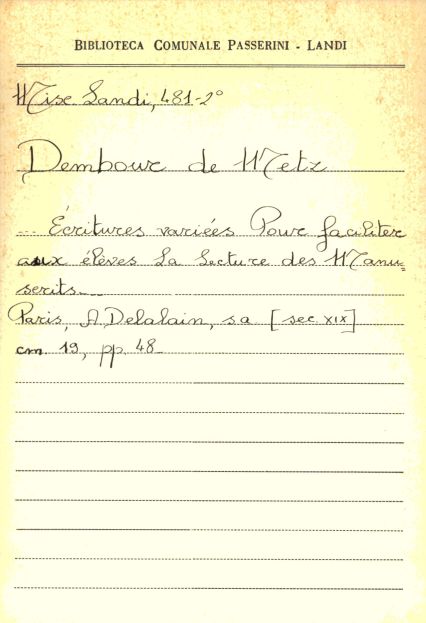 BIBLIOTECA COMUNALE PASSERINI - LANDI
Misc. Landi, 481-2°
Dembour de Metz
... Écritures variées Pour faciliter
aux élèves la lecture des Manu=
scrits...
Paris, A Delalain, sa [sec XIX]
cm. 19, pp. 48